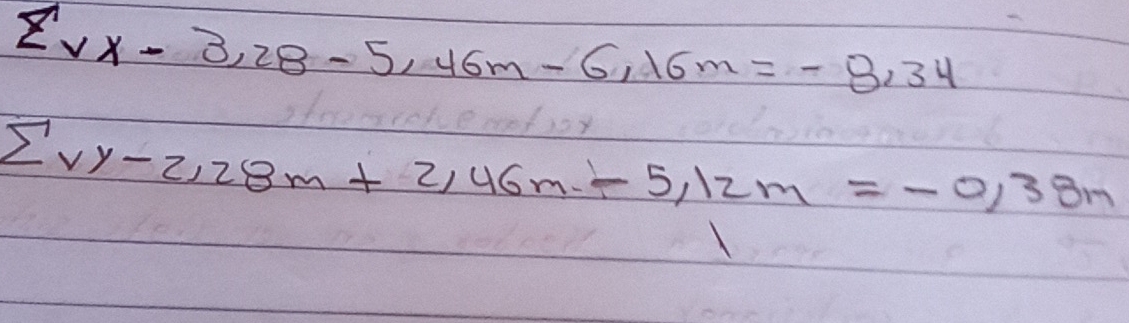 Σvx - 3,28 - 5,46m - 6,16m = - 8,34
Σvy - 2,28m + 2,46m - 5,12m = - 0,38m